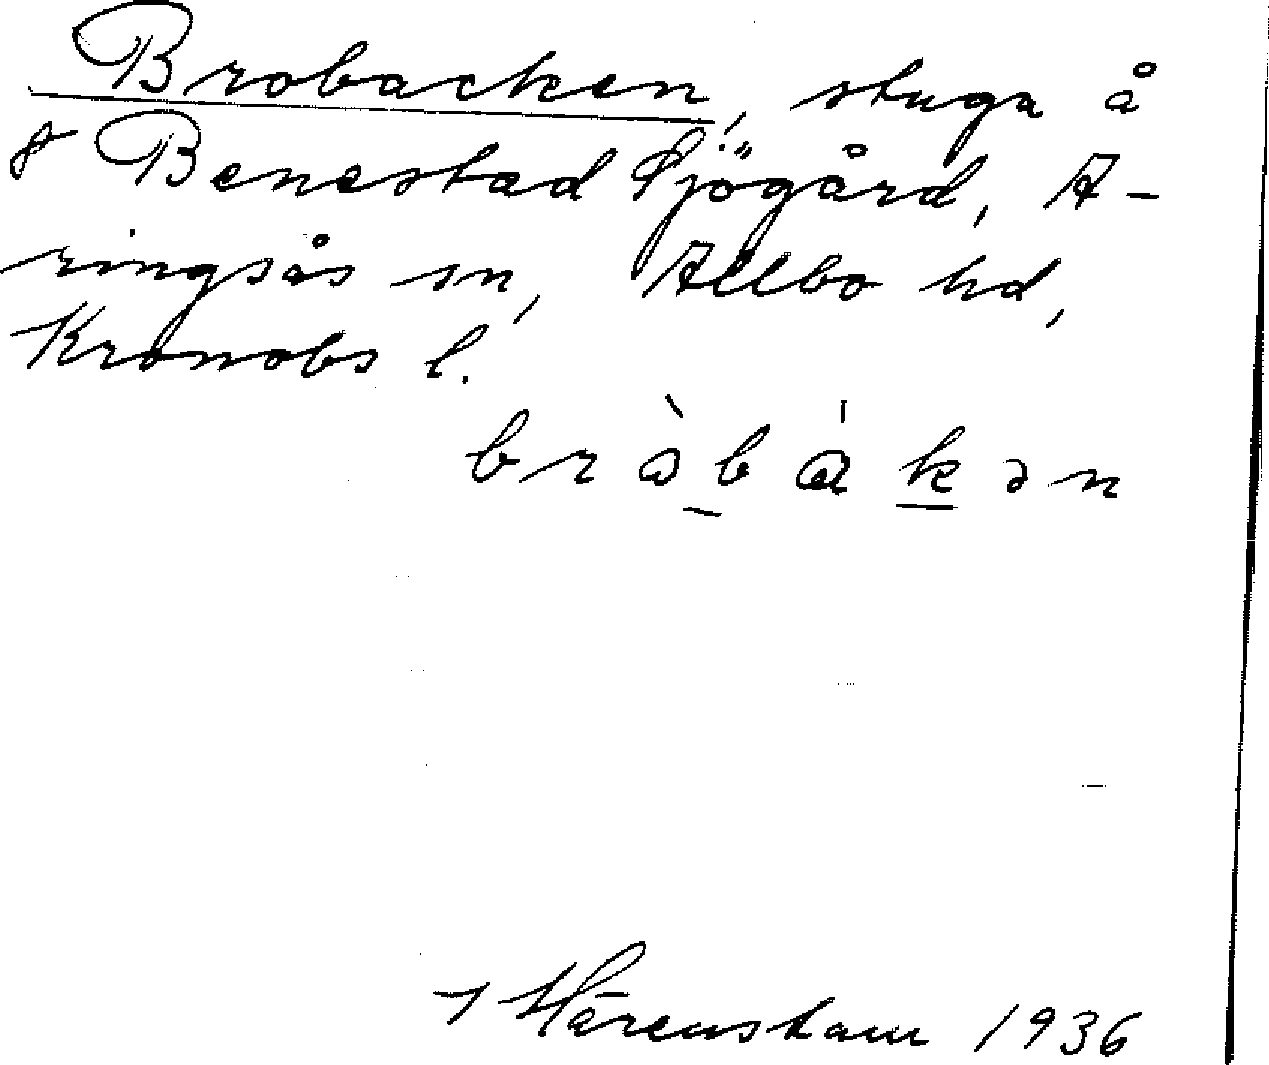 Brobacken, stuga å
Benestad Sjögård, A-
ringsås sn, Allbo hd,
Kronobs l.
brɔ̀bákən
Härenstam 1936